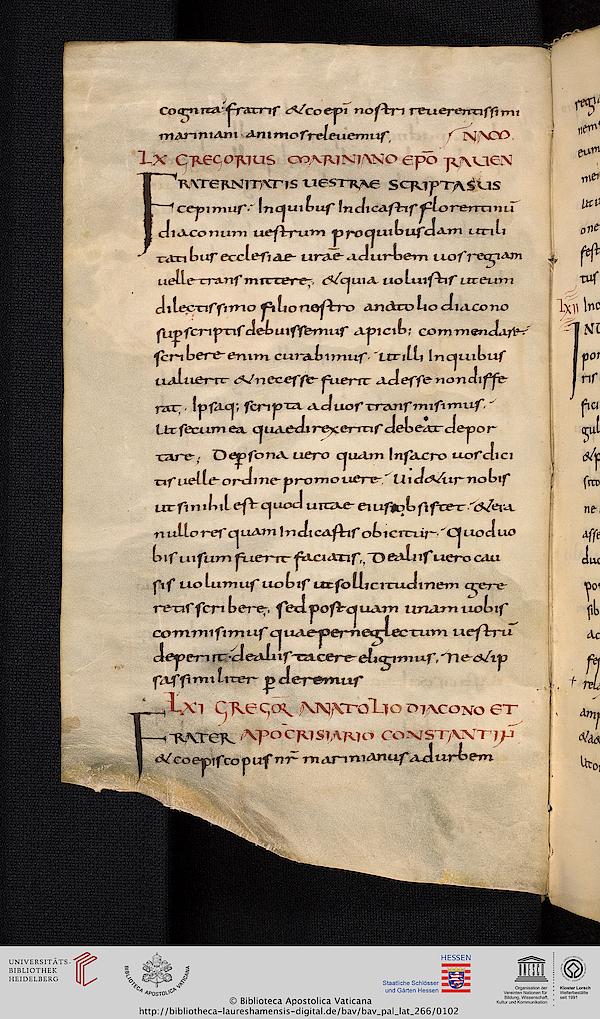 cognita: fratris & coepi nostri reverentissimi
mariniani animos relevemus,
NAM.
LX GREGORIUS MARINIANO EPŌ RAUEN
FRATERNITATIS UESTRAE SCRIPTA SUS
cepimus: Inquibus Indicastis florentinū
diaconum uestrum proquibusdam utili
tatibus ecclesiae uraē adurbem uos regiam
uelle transmittere, & quia uoluistis uteum
dilectissimo filio nostro anatolio diacono
sup scriptis debuissemus apicib; commendare
scribere enim curabimus. utilli Inquibus
ualuerit & necesse fuerit adesse nondiffe
rat, Ipsaq; scripta aduos transmisimus.
Ut secum ea quae direxeritis debeat depor
tare, De persona uero quam Insacro uos dici
tis uelle ordine promouere. Uid&ur nobis
ut sinihil est quod uitae eius obsistet. & ei a
nullo res quam Indicastis obicitur. Quod uo
bis uisum fuerit faciatis, De aliis uero cau
sis uolumus uobis ut sollicitudinem gere
retis scribere, sed postquam unam uobis
commisimus quae per neglectum uestrū
deperiit. de aliis tacere eligimus, Ne & ip
sas similiter perderemus
LXI GREGOR ANATOLIO DIACONO ET
FRATER APOCRISIARIO CONSTANTIP
& coepiscopus nr̄ marinianus adurbem
regi
nem
eum
mei
one
fest
tus
LXII Ino
INU
por
tis
fici
gul
&p
sito
ne
asse
duc
po
sib
ac
fes
rel
amp
&a
UNIVERSITÄTS-
BIBLIOTHEK
HEIDELBERG
BIBLIOTHECA APOSTOLICA VATICANA
HESSEN
Staatliche Schlösser
und Gärten Hessen
Organisation der
Vereinten Nationen für
Bildung, Wissenschaft,
Kultur und Kommunikation
Kloster Lorsch
Welterbestätte
seit 1991
© Biblioteca Apostolica Vaticana
http://bibliotheca-laureshamensis-digital.de/bav/bav_pal_lat_266/0102